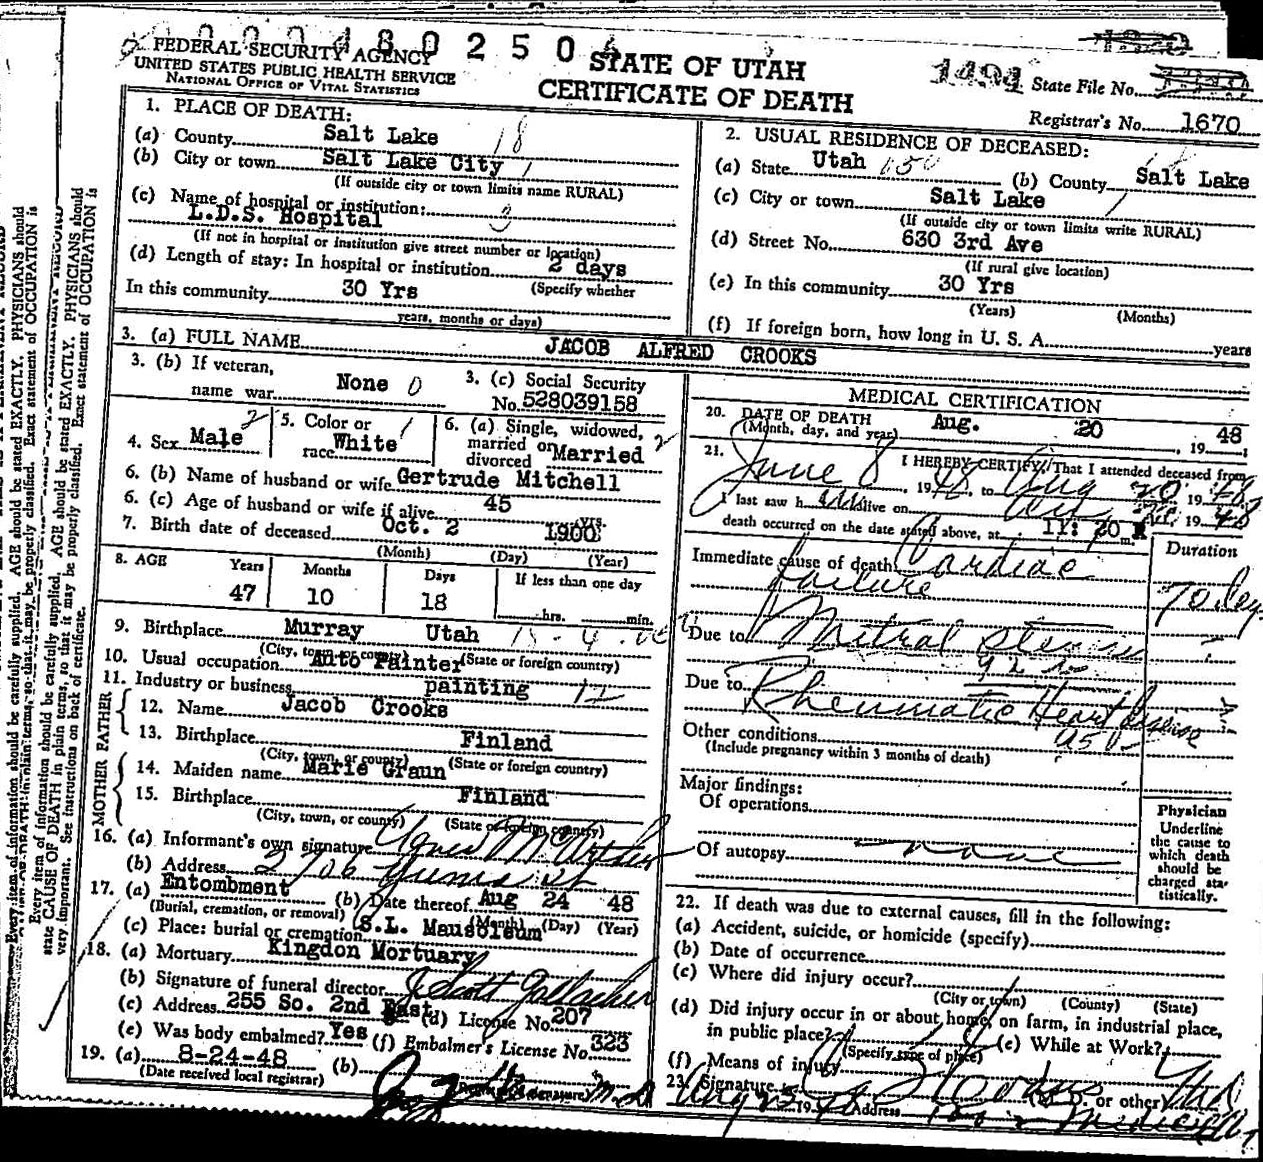 0 0 0 4 8 0 2 5 0
FEDERAL SECURITY AGENCY
UNITED STATES PUBLIC HEALTH SERVICE
NATIONAL OFFICE OF VITAL STATISTICS
STATE OF UTAH
CERTIFICATE OF DEATH
1494 State File No.
Registrar's No. 1670
1. PLACE OF DEATH:
(a) County Salt Lake 18
(b) City or town Salt Lake City 1
(If outside city or town limits name RURAL)
(c) Name of hospital or institution:
L.D.S. Hospital
(If not in hospital or institution give street number or location)
(d) Length of stay: In hospital or institution 2 days
In this community 30 Yrs (Specify whether
years, months or days)
2. USUAL RESIDENCE OF DECEASED:
(a) State Utah 150 (b) County Salt Lake
(c) City or town Salt Lake 1
(If outside city or town limits write RURAL)
(d) Street No. 630 3rd Ave
(If rural give location)
(e) In this community 30 Yrs
(Years) (Months)
(f) If foreign born, how long in U. S. A. years
3. (a) FULL NAME JACOB ALFRED CROOKS
3. (b) If veteran,
name war None 0
3. (c) Social Security
No. 528039158
4. Sex Male 2
5. Color or
race White 1
6. (a) Single, widowed,
married or
divorced Married 2
6. (b) Name of husband or wife Gertrude Mitchell
6. (c) Age of husband or wife if alive 45 yrs.
7. Birth date of deceased Oct. 2 1900
(Month) (Day) (Year)
8. AGE Years Months Days If less than one day
47 10 18 hrs. min.
9. Birthplace Murray Utah
(City, town, or county) (State or foreign country)
10. Usual occupation Auto Painter
11. Industry or business painting 12
FATHER
12. Name Jacob Crooks
13. Birthplace Finland
(City, town, or county) (State or foreign country)
MOTHER
14. Maiden name Marie Graun
15. Birthplace Finland
(City, town, or county) (State or foreign country)
16. (a) Informant's own signature Agnes
(b) Address 2706
17. (a) Entombment (b) Date thereof Aug 24 48
(Burial, cremation, or removal) (Month) (Day) (Year)
(c) Place: burial or cremation S.L. Mausoleum
18. (a) Mortuary Kingdon Mortuary
(b) Signature of funeral director J Scott Gallacher
(c) Address 255 So. 2nd East (d) License No. 207
(e) Was body embalmed? Yes (f) Embalmer's License No. 323
19. (a) 8-24-48 (b)
(Date received local registrar)
MEDICAL CERTIFICATION
20. DATE OF DEATH
(Month, day, and year) Aug. 20, 19 48
21. I HEREBY CERTIFY, That I attended deceased from
June 8, 1948, to Aug 20 1948
I last saw him alive on 1948
death occurred on the date stated above, at 11:20 m.
Duration
Immediate cause of death Cardiac
failure
Due to Mitral stenosis
Due to Rheumatic Heart disease
Other conditions
(Include pregnancy within 3 months of death)
Major findings:
Of operations
Of autopsy none
Physician
Underline
the cause to
which death
should be
charged sta-
tistically.
22. If death was due to external causes, fill in the following:
(a) Accident, suicide, or homicide (specify)
(b) Date of occurrence
(c) Where did injury occur?
(City or town) (County) (State)
(d) Did injury occur in or about home, on farm, in industrial place,
in public place? (e) While at Work?
(Specify type of place)
(f) Means of injury
23. Signature or other)
Aug 19 Address
Every item of information should be carefully supplied. AGE should be stated EXACTLY. PHYSICIANS should
state CAUSE OF DEATH in plain terms, so that it may be properly classified. Exact statement of OCCUPATION is
very important. See instructions on back of certificate.